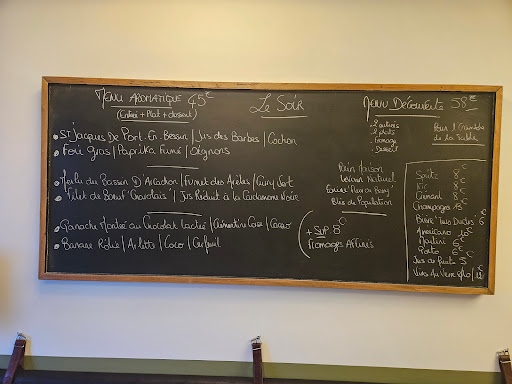 Menu Aromatique 45€
(Entrée + Plat + dessert)
Le Soir
Menu Découverte 58€
2 entrées
2 plats
Fromage
Dessert
Pour l'Ensemble
de la Table
• St Jacques De Port-En-Bessin / Jus des Barbes / Cochon
• Foie Gras / Paprika Fumé / Oignons
• Merlu Du Bassin D'Arcachon / Fumet des Arêtes / Curry Vert
• Filet de Bœuf Charolais / Jus Réduit à la Cardamome Noire
• Ganache Montée au Chocolat Lacté / Clémentine Corse / Cacao
• Banane Rôtie / Arlette / Coco / Cerfeuil
Pain Maison
Levain Naturel
Farine
Blés de Population
+ Sup 8€
Fromages Affinés
Spritz 8€
Kir 8€
Crémant 8€
Champagnes 13€
Bière Trois Ducs 6€
Americano 10€
Martini 6€
Porto 6€
Jus de fruits 5€
Vins Au Verre